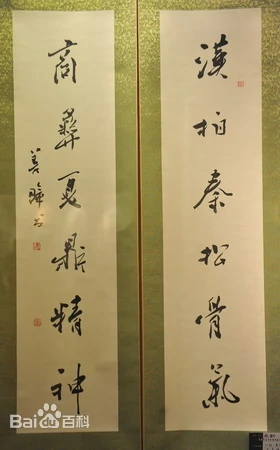 漢柏秦松骨氣
商彝夏鼎精神
善暐书
Bai百科